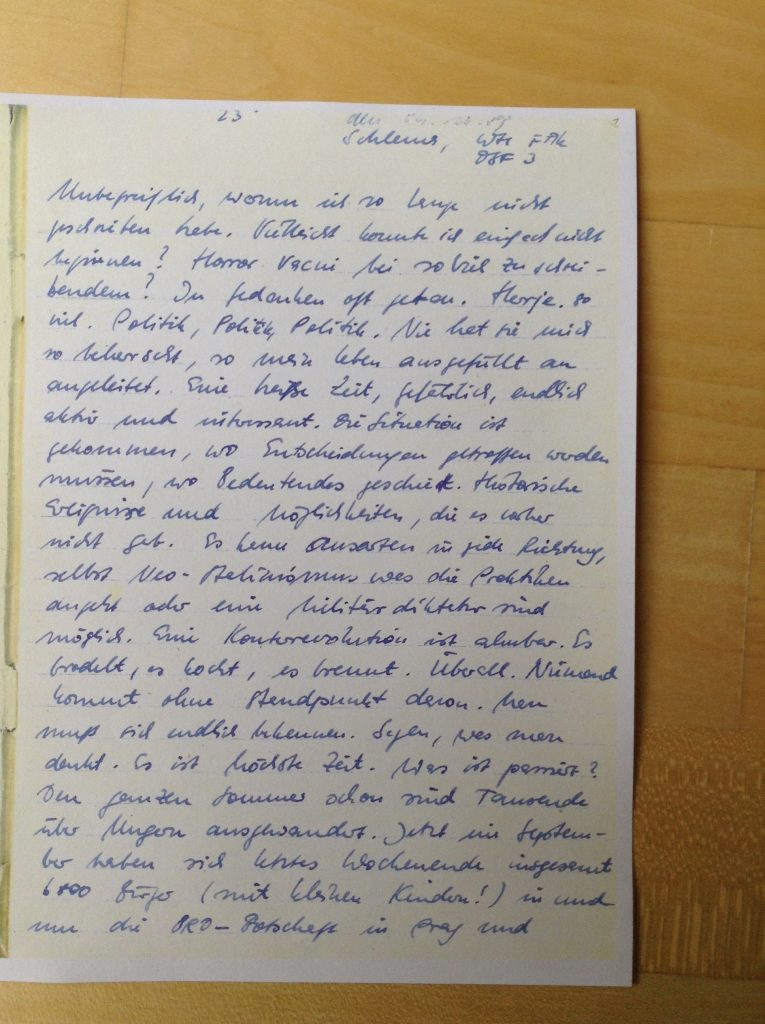 23
den
Schlema, WH FAK
DSF 3
Unbegreiflich, warum ich so lange nicht
geschrieben habe. Vielleicht konnte ich einfach nicht
beginnen? Horror Vacui bei soviel zu schrei-
bendem? In Gedanken oft getan. Herrje. so
viel. Politik, Politik, Politik. Nie hat sie mich
so beherrscht, so mein Leben ausgefüllt an
angeleitet. Eine heiße Zeit, gefährlich, endlich
aktiv und interessant. Die Situation ist
gekommen, wo Entscheidungen getroffen werden
müssen, wo Bedeutendes geschieht. Historische
Ereignisse und Möglichkeiten, die es vorher
nicht gab. Es kann ausarten in jede Richtung,
selbst Neo-Stalinismus was die Praktiken
angeht oder eine Militärdiktatur sind
möglich. Eine Konterrevolution ist ahnbar. Es
brodelt, es kocht, es brennt. Überall. Niemand
kommt ohne Standpunkt davon. Man
muß sich endlich bekennen. Sagen, was man
denkt. Es ist höchste Zeit. Was ist passiert?
Den ganzen Sommer schon sind Tausende
über Ungarn ausgewandert. Jetzt im Septem-
ber haben sich letztes Wochenende insgesamt
Bürger (mit kleinen Kindern!) in und
um die BRD-Botschaft in Prag und